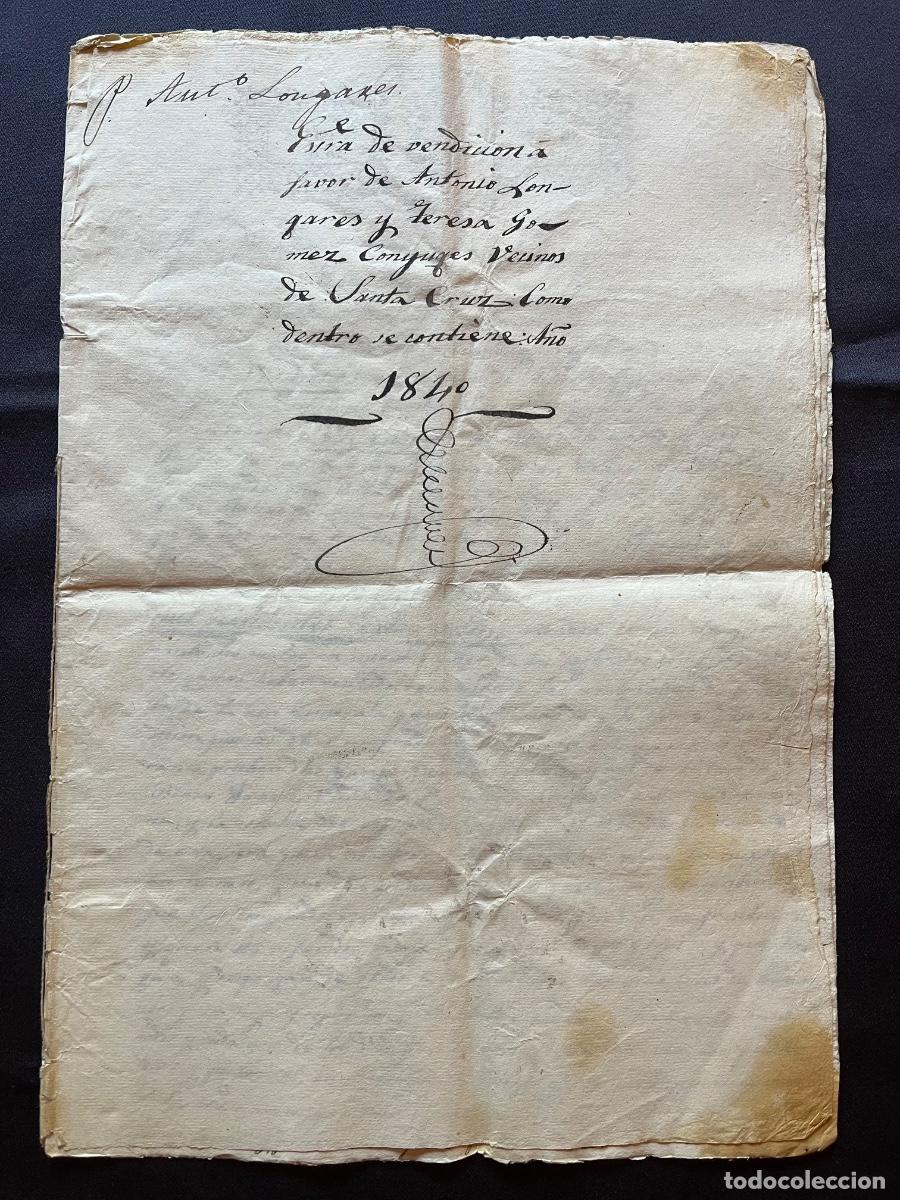 P. Ant.º Longares.
Esᵉʳᵃ de vendicion à
favor de Antonio Lon-
gares y Teresa Go-
mez Conyuges Vecinos
de Santa Cruz: Como
dentro se contiene: Año
1840
todocoleccion